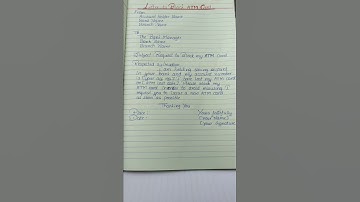 Letter to Block ATM Card
From
Account holder Name
Bank Name
Branch Name
To
The Bank Manager
Bank Name
Branch Name
Subject: Request to block my ATM card
Respected Sir/Madam
I am holding saving account
in your bank and my account number
is I have lost my ATM card
Please block my
ATM card in order to avoid misusing. I
request you to issue a new ATM card
as soon as possible
Thanking You
Place: Yours faithfully
Date: (Your Name)
(Your Signature)